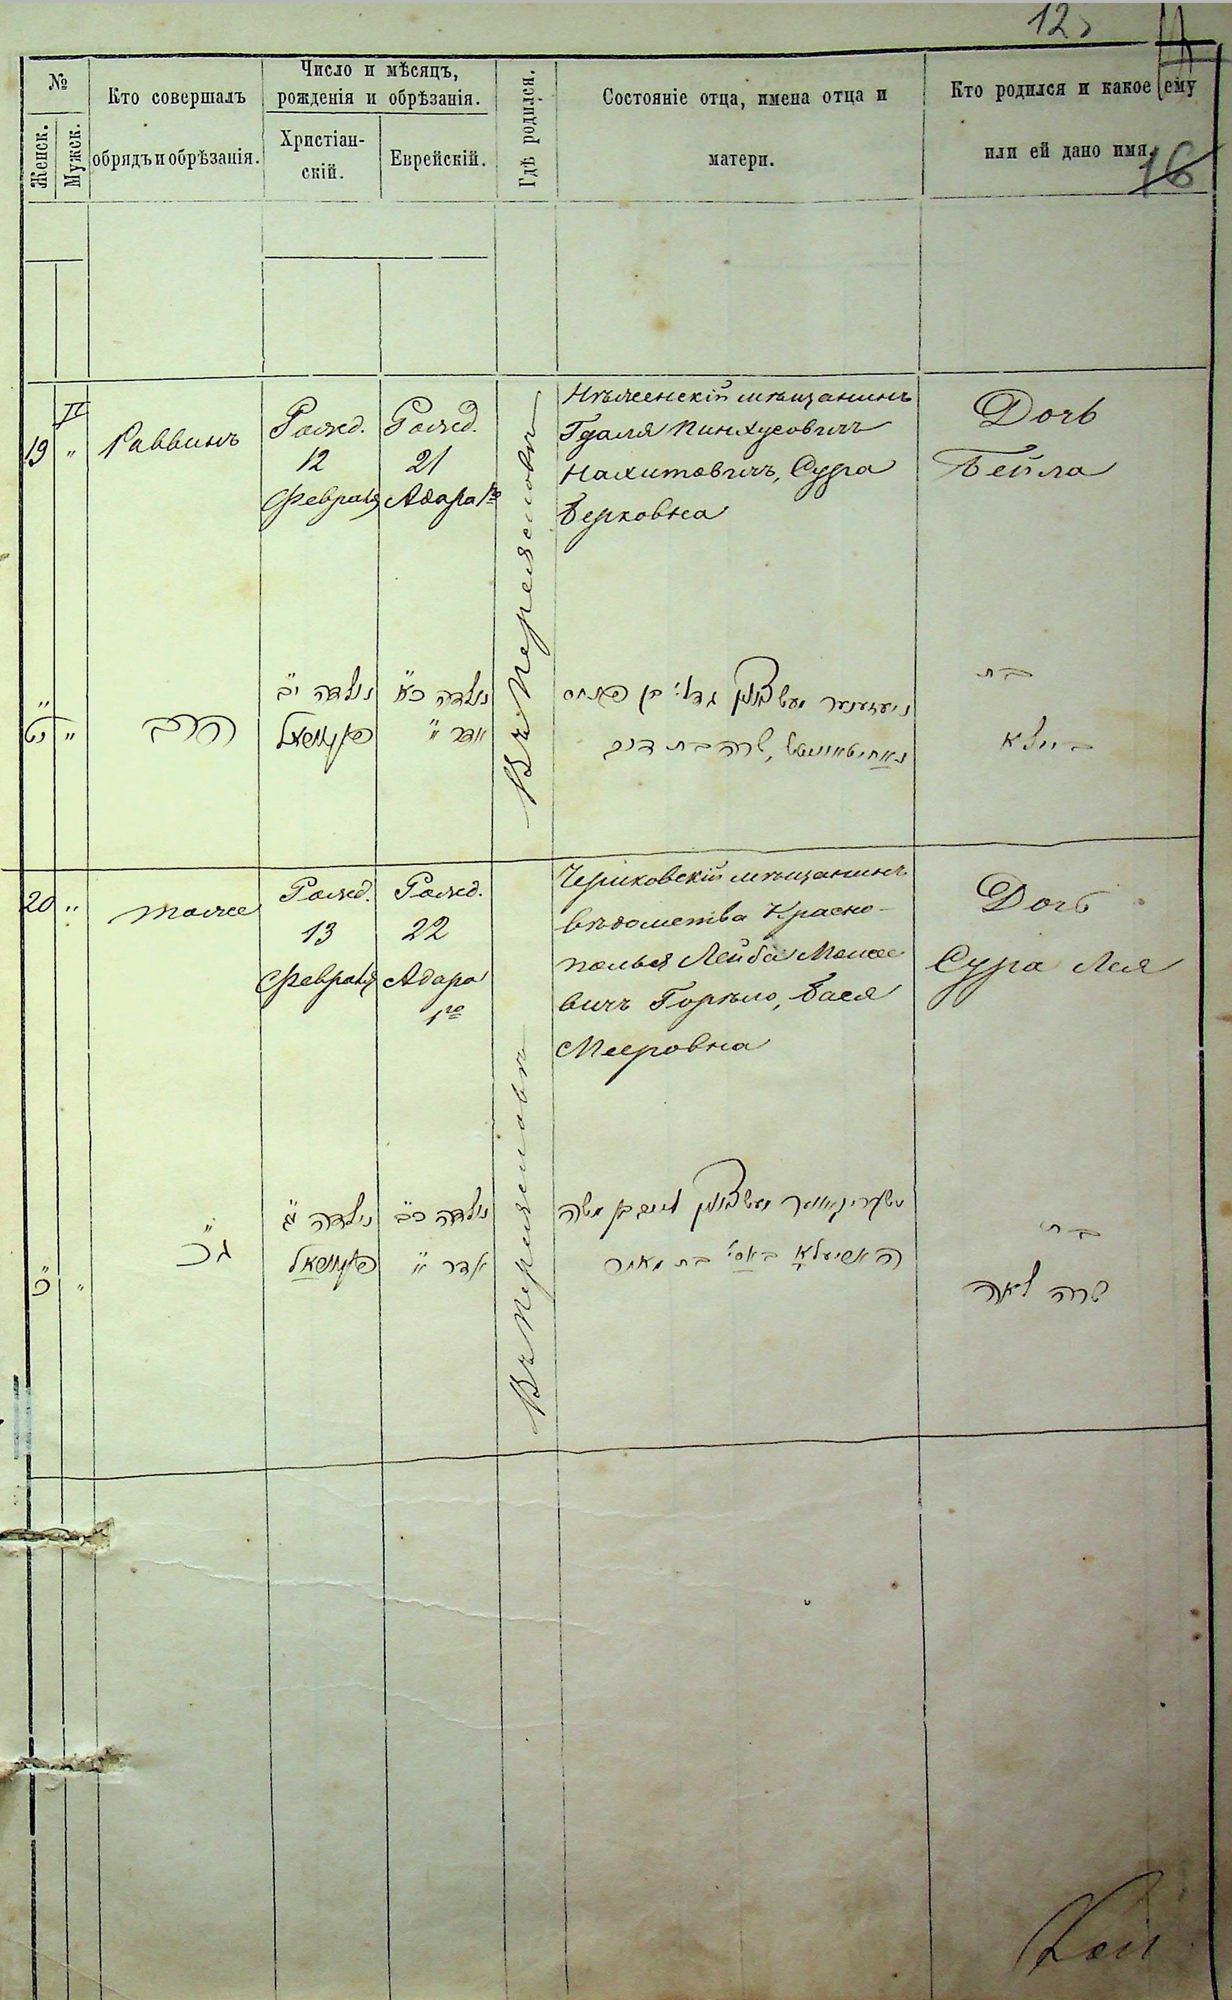 12
16
№
Женск.
Мужск.
Кто совершалъ
обрядъ и обрѣзанія.
Число и мѣсяцъ,
рожденія и обрѣзанія.
Христіан-
скій.
Еврейскій.
Гдѣ родился.
Состояніе отца, имена отца и
матери.
Кто родился и какое ему
или ей дано имя.
19
"
Раввинъ
Рожд.
12
Февраля
Рожд.
21
Адара 1го
Въ Переяславѣ
Нѣженскій мѣщанинъ
Гдаля Пинхусовичъ
Нахитовичъ, Сура
Берковна
Дочь
Бейла
יט
"
הרב
נולדה י״ב
נולדה כ״א
אדר
שרה בת
בת
ביילא
20
"
тоже
Рожд.
13
Февраля
Рожд.
22
Адара
1го
Въ Переяславѣ
Чериковскій мѣщанинъ
вѣдомства Красно-
полья Лейба Мовше
вичъ Горѣло, Бася
Мееровна
Дочь
Сура Лея
כ
"
ג״כ
נולדה י״ג
נולדה כ״ב
אדר
בן משה
באסי בת מאיר
בת
שרה לאה